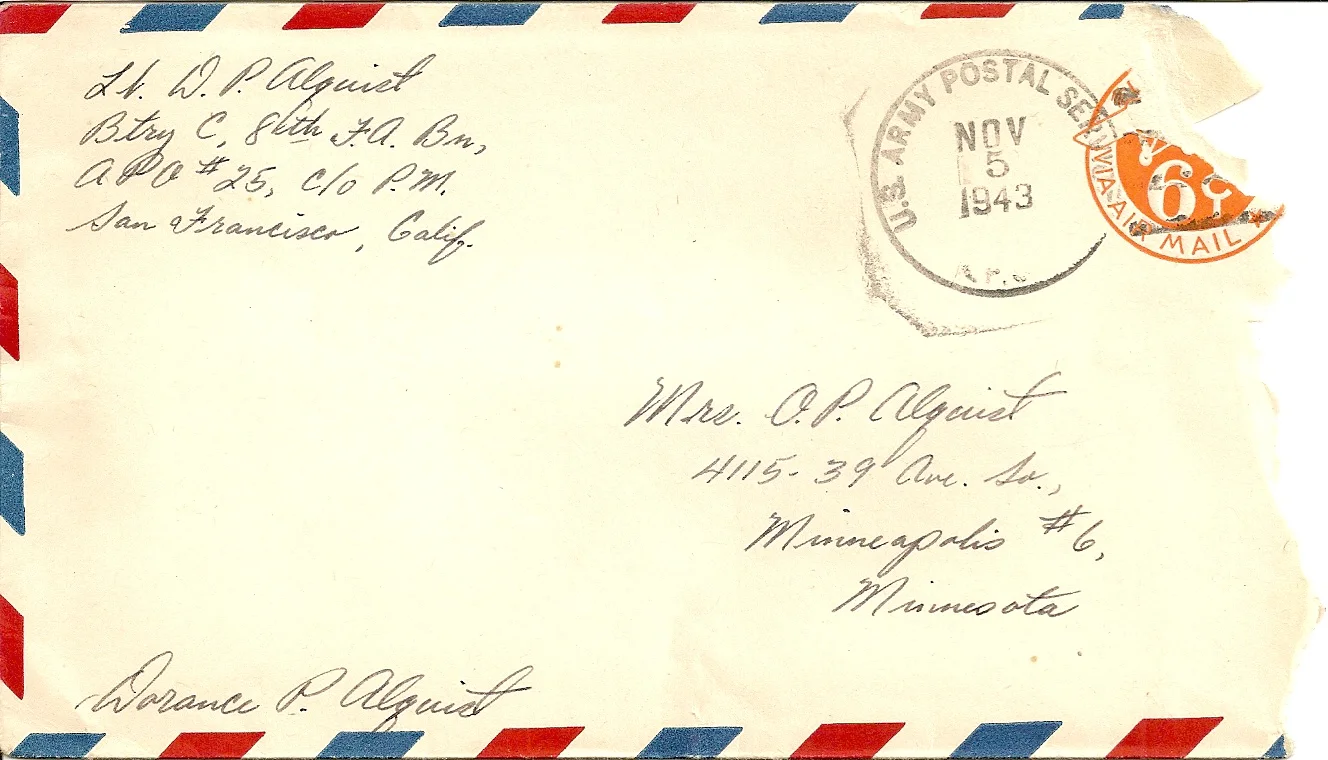 Lt. D. P. Alquist
Btry C, 8th F.A. Bn,
APO #25, c/o P.M.
San Francisco, Calif.
U.S. ARMY POSTAL SERV
NOV
5
1943
A.P.O
6¢
VIA AIR MAIL
Mrs. O. P. Alquist
4115-39 Ave. So.,
Minneapolis #6,
Minnesota
Dorance P. Alquist